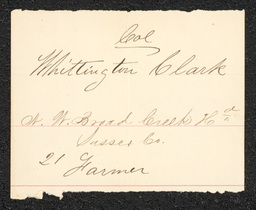 Col
Whittington Clark
N. W. Broad Creek Hd
Sussex Co.
21 Farmer